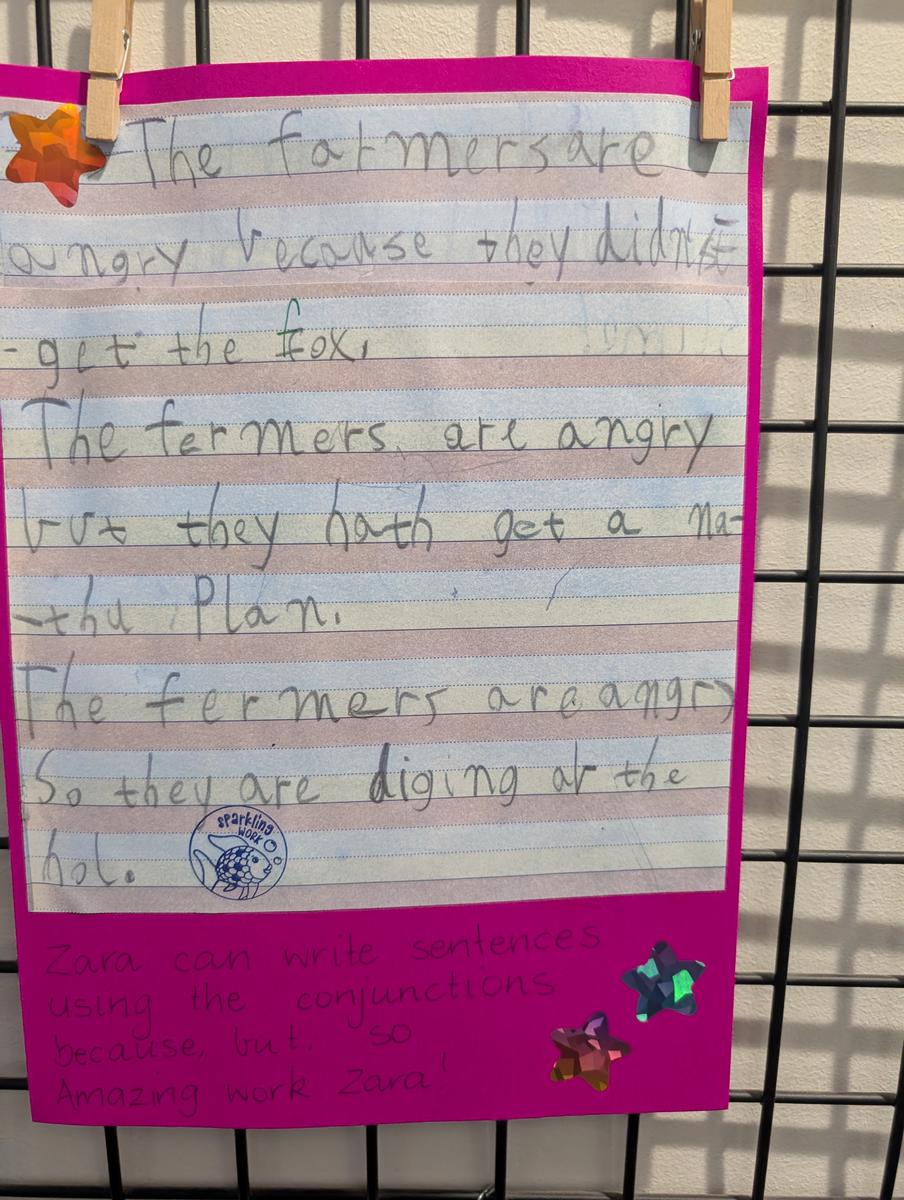 The farmers are
angry because they didn't
-get the fox.
The fermers are angry
but they hath get a na-
-thu Plan.
The fermers are angry
So they are diging at the
hol.
sparkling
WORK
Zara can write sentences
using the conjunctions
because, but, so
Amazing work Zara!